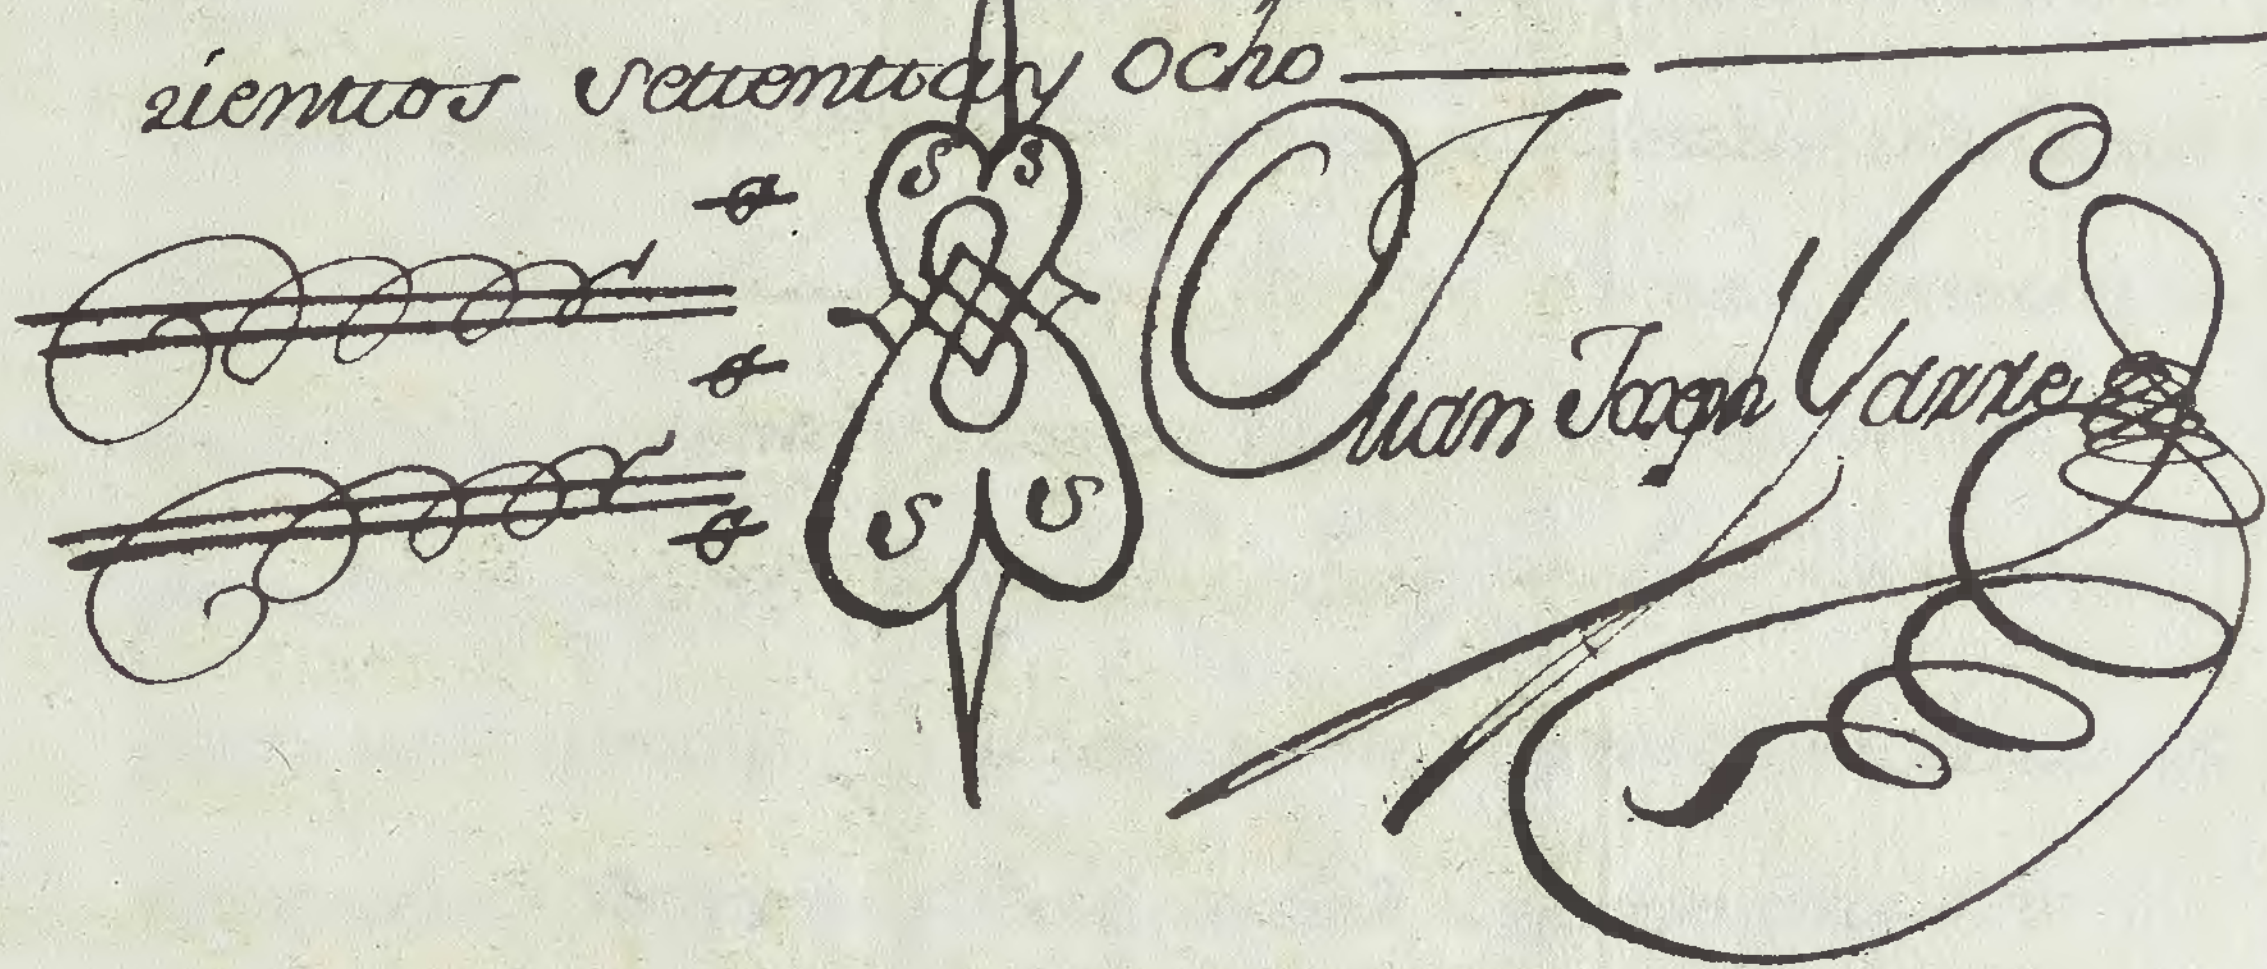 zientos settenttay Ocho
S S
S S
Juan Joseph